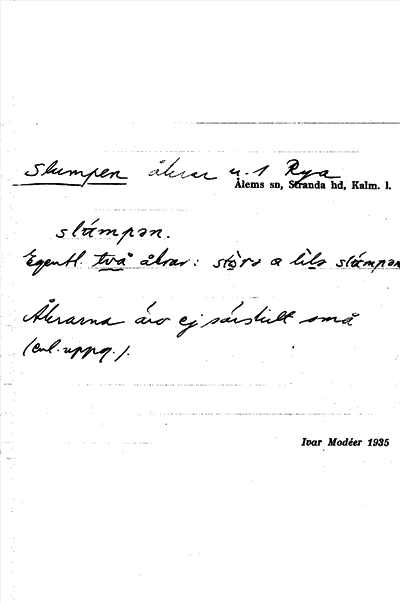 Slumpen åkrar u. 1 Rya
Ålems sn, Stranda hd, Kalm. l.
slámpən.
Egentl. två åkrar: störa o lila slámpən
Åkrarna äro ej särskilt små
(enl. uppg.).
Ivar Modéer 1935